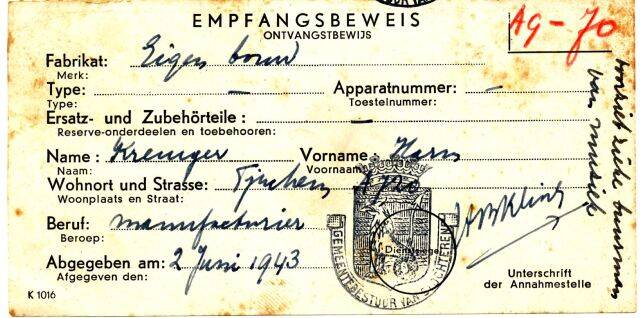 EMPFANGSBEWEIS
ONTVANGSTBEWIJS
AG-70
Fabrikat: Eigen bouw
Merk:
Type: — Apparatnummer: —
Type: Toestelnummer:
Ersatz- und Zubehörteile: —
Reserve-onderdeelen en toebehooren:
Name: Kreuger Vorname: Harm
Naam: Voornaam
Wohnort und Strasse: A 720
Woonplaats en Straat:
Beruf: manufacturier
Beroep:
Abgegeben am: 2 Juni 1943
Afgegeven den:
Dienstsiegel
GEMEENTEBESTUUR VAN SLOCHTEREN
Unterschrift
der Annahmestelle
K 1016
van muziek